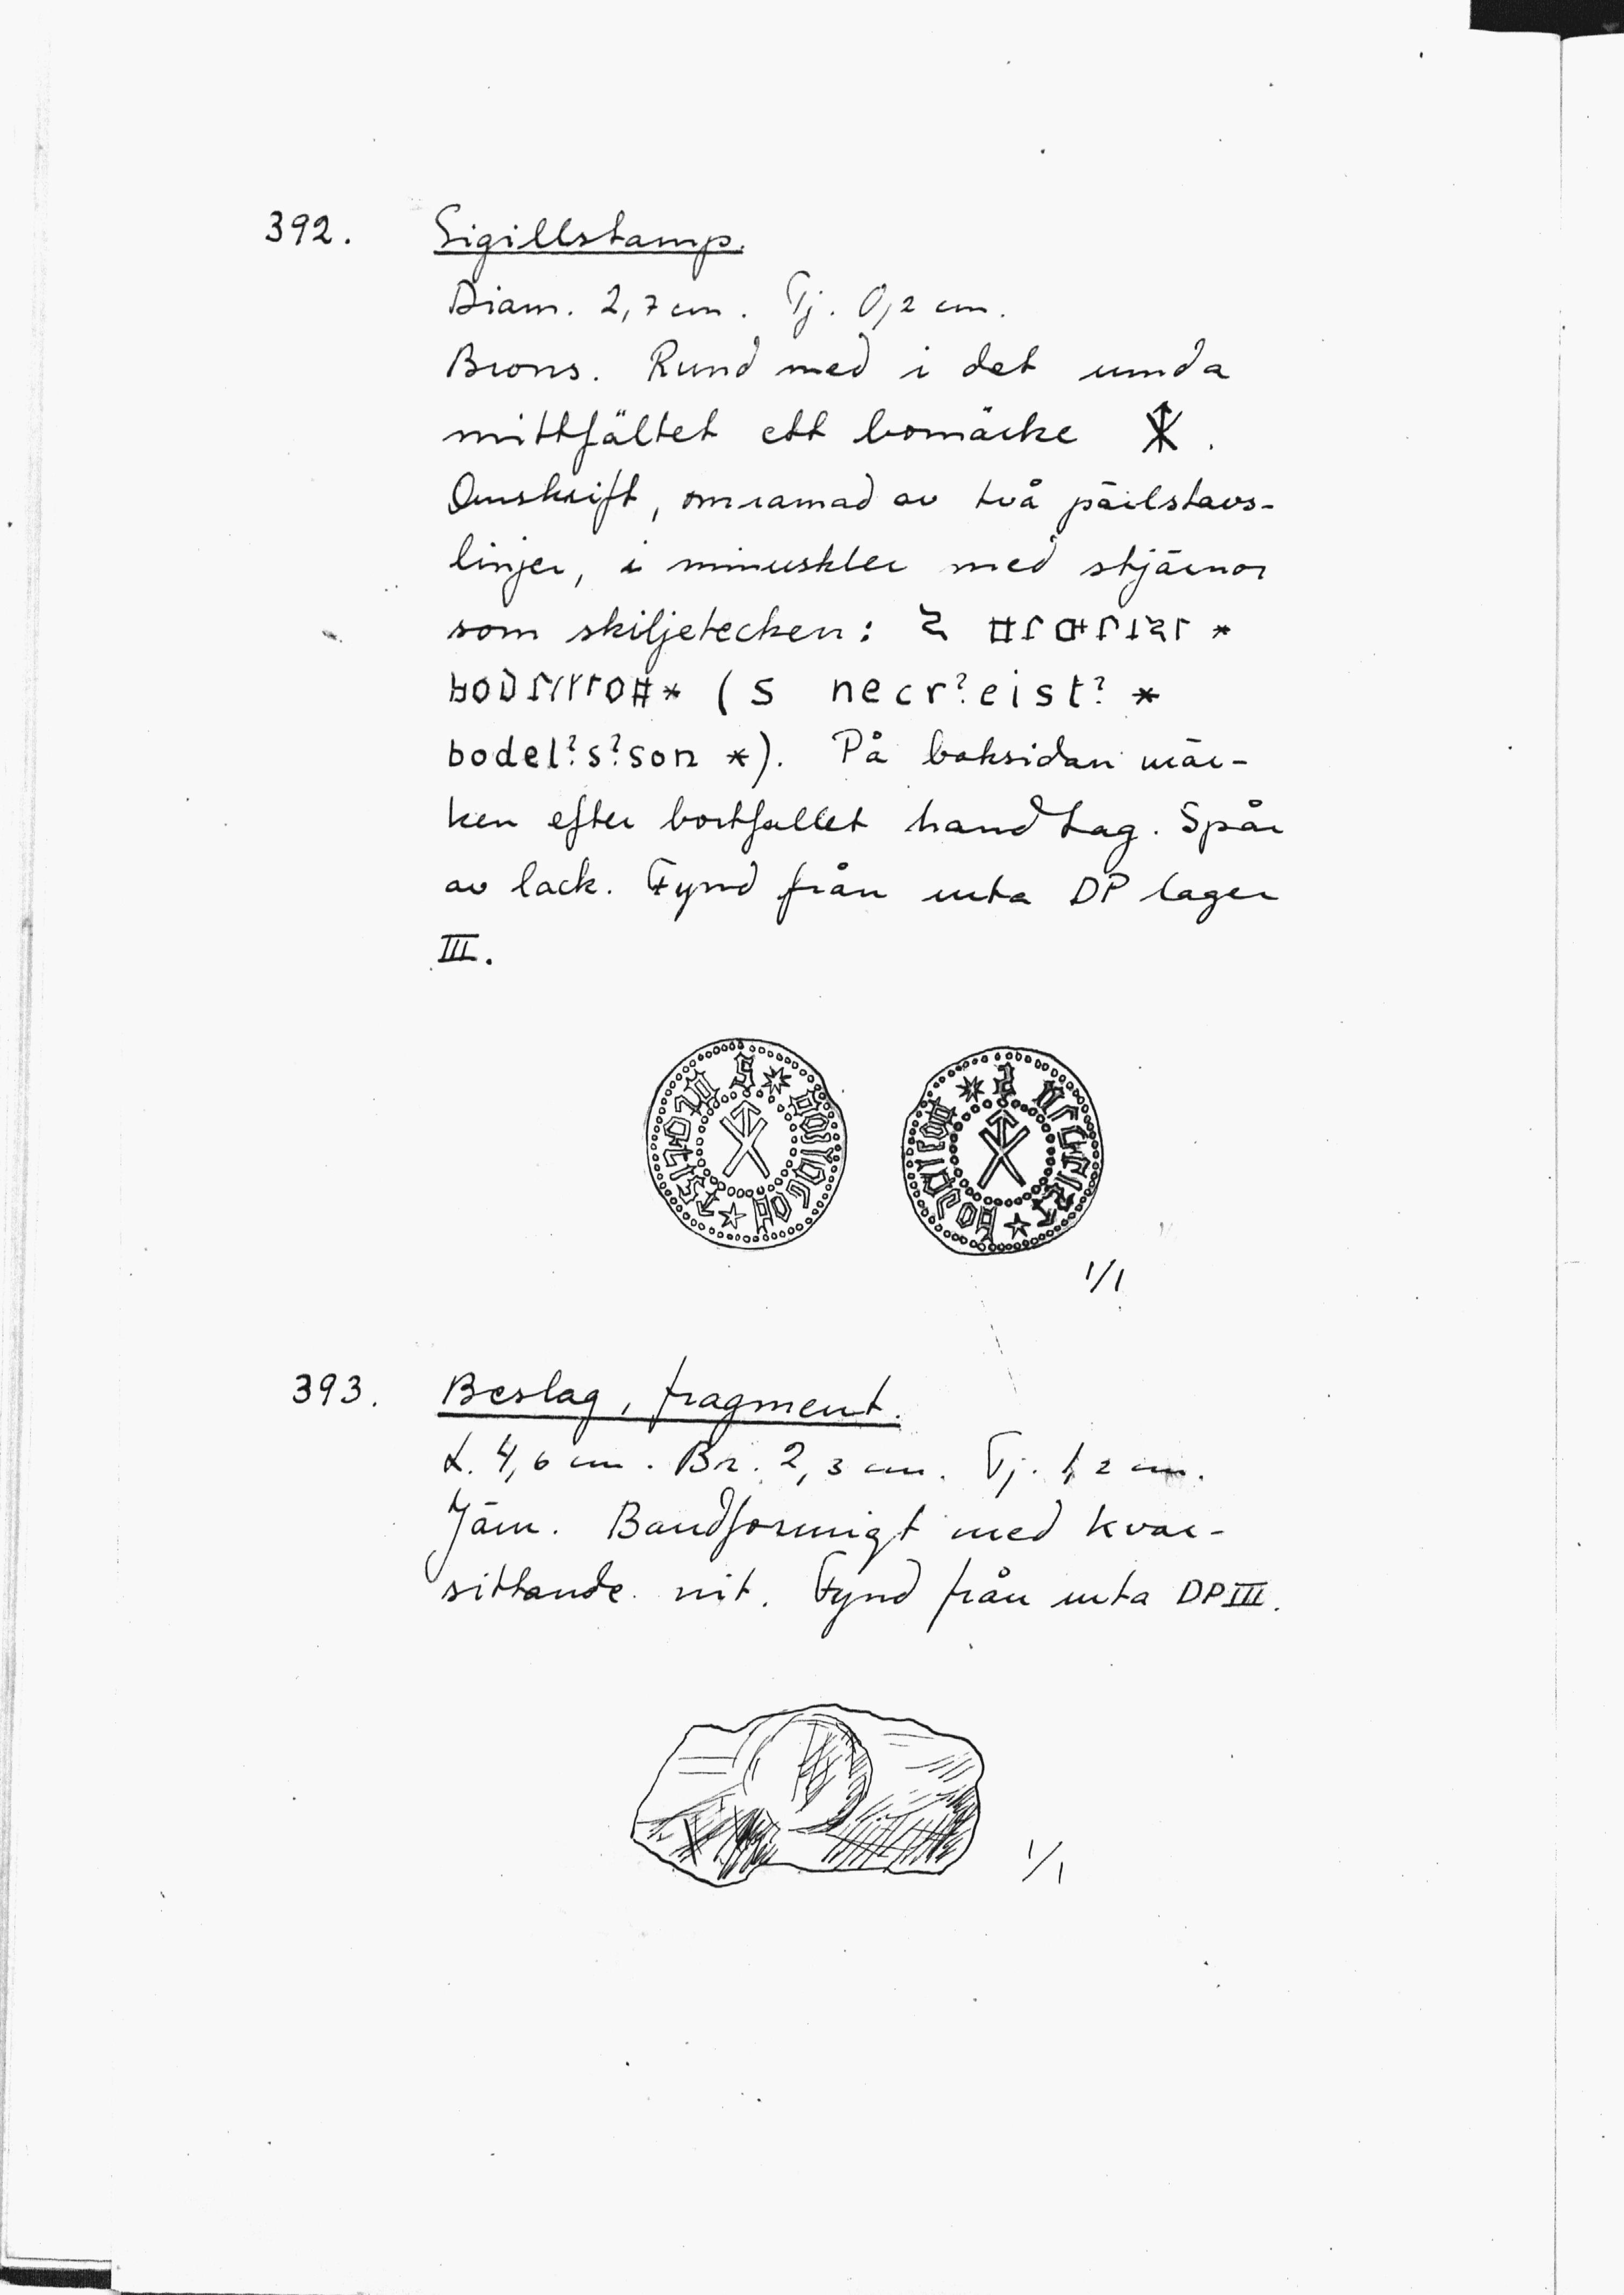 392. Sigillstamp.
Diam. 2,7 cm. Tj. 0,2 cm.
Brons. Rund med i det runda
mittfältet ett bomärke .
Omskrift, omramad av två pärlstavs-
linjer, i minuskler med stjärnor
som skiljetecken: *
* (s necr?eist? *
bodel?s?son *). På baksidan mär-
ken efter bortfallet handtag. Spår
av lack. Fynd från ruta DP lager
III.
1/1
393. Beslag, fragment.
L. 4,6 cm. Br. 2,3 cm. Tj. 1,2 cm.
Järn. Bandformigt med kvar-
sittande nit. Fynd från ruta DP III.
1/1